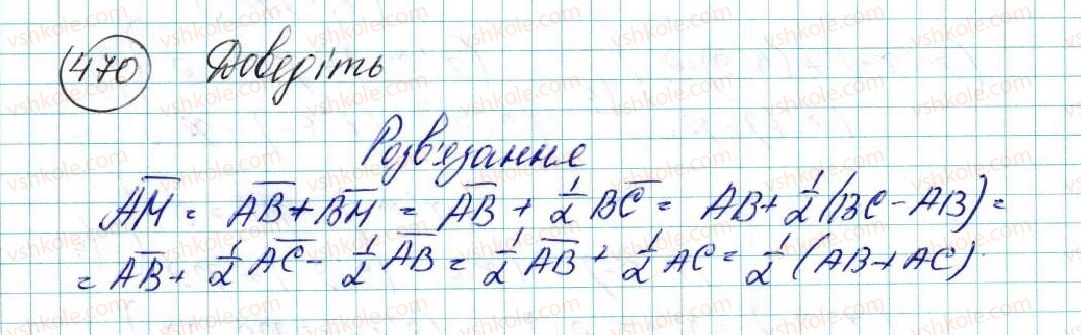 470 Доведіть
Розв'язання
$\overline{AM} = \overline{AB} + \overline{BM} = \overline{AB} + \frac{1}{2}\overline{BC} = AB + \frac{1}{2}(BC - AB) =$
$= \overline{AB} + \frac{1}{2}\overline{AC} - \frac{1}{2}\overline{AB} = \frac{1}{2}\overline{AB} + \frac{1}{2}AC = \frac{1}{2}(AB + AC)$